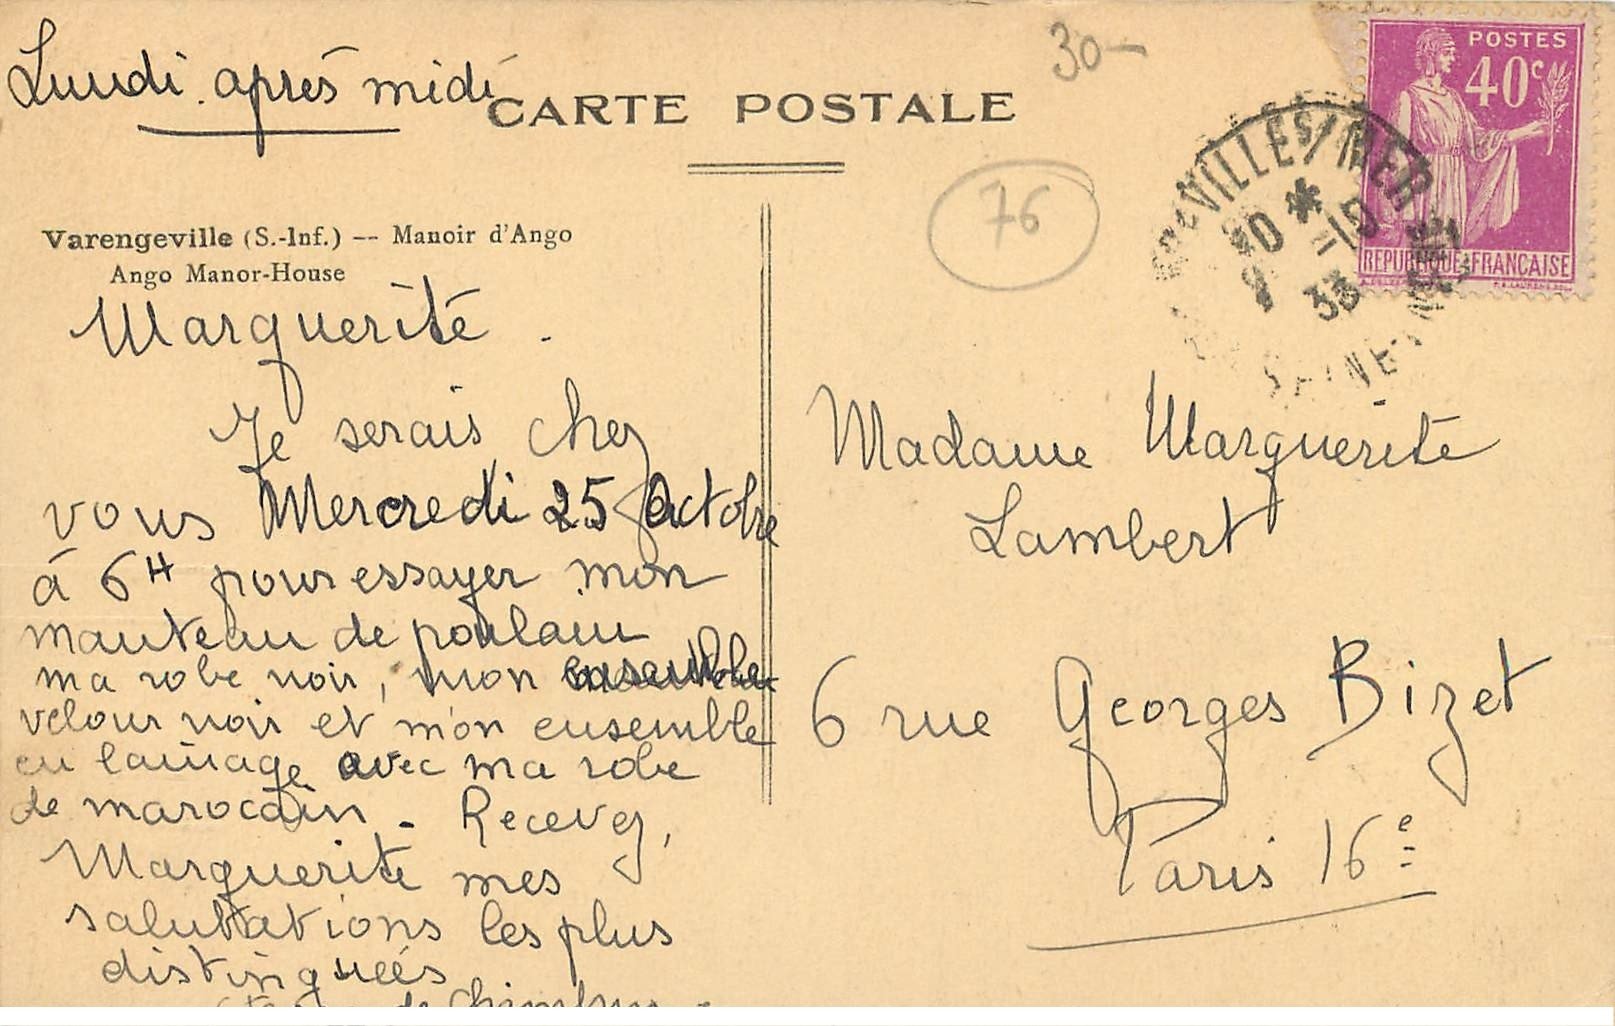 Lundi après midi
CARTE POSTALE
30-
76
POSTES
40c
REPUBLIQUE FRANÇAISE
VILLE S/MER
10 * -10
33
SEINE-INF
Varengeville (S.-Inf.) -- Manoir d'Ango
Ango Manor-House
Marguerite.
Je serais chez
vous Mercredi 25 Octobre
à 6H pour essayer mon
manteau de poulain
ma robe noir, mon ensemble
velour noir et mon ensemble
en lainage avec ma robe
de marocain. Recevez,
Marguerite mes
salutations les plus
distinguées
de
Madame Marguerite
Lambert
6 rue Georges Bizet
Paris 16e